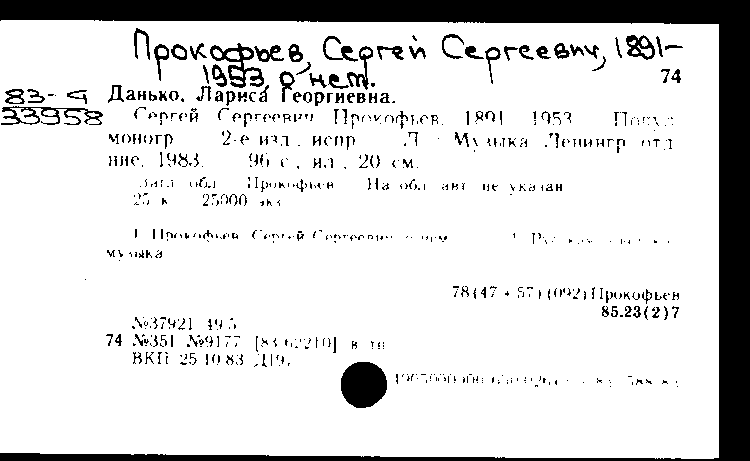 Прокофьев, Сергей Сергеевич, 1891-
1953, о нем.
74
83-4
33958
Данько, Лариса Георгиевна.
Сергей Сергеевич Прокофьев, 1891 1953 Попул
моногр 2-е изд , испр Л : Музыка Ленингр отд
ние, 1983. 96 с , ил , 20 см.
Загл обл Прокофьев На обл авт не указан
25 к 25000 экз
1 Прокофьев Сергей Сергеевич о нем
музыка
78(47 + 57)(092)Прокофьев
85.23(2)7
№37921 49 5
74 №351 №9177 [83 62210] в
ВКП 25 10 83 Д19